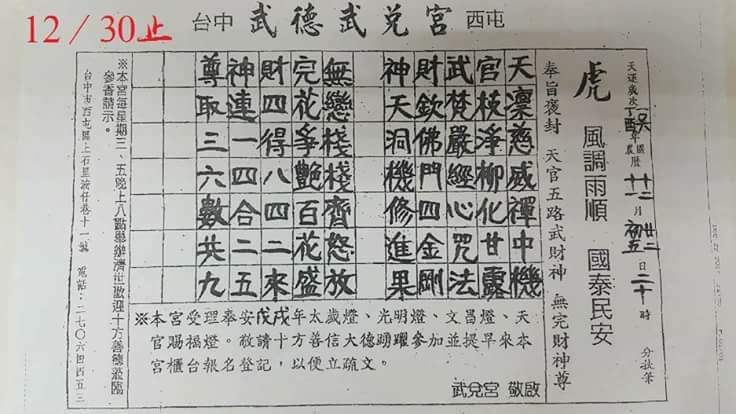 12/30止
台中 武德武兌宮 西屯
天運歲次丁酉年國農曆十二十一月廿二初五日二十時 分扶筆
虎 風調雨順 國泰民安
奉旨褒封 天官五路武財神 無完財神尊
天凜慈威禪中機
官枝淨柳化甘露
武梵嚴經心咒法
財欽佛門四金剛
神天洞機修進果
無戀棧棧齊怒放
完花爭艷百花盛
財四得八四二來
神連一四合二五
尊取三六數共九
※本宮受理奉安戊戌年太歲燈、光明燈、文昌燈、天
官賜福燈。敬請十方善信大德踴躍參加並提早來本
宮櫃台報名登記，以便立疏文。
武兌宮 敬啟
※本宮每星期三、五晚上八點舉辦濟世歡迎十方善德蒞臨
參香請示。
台中市西屯區上石里 巷十一號 電話：二七○六四四五三